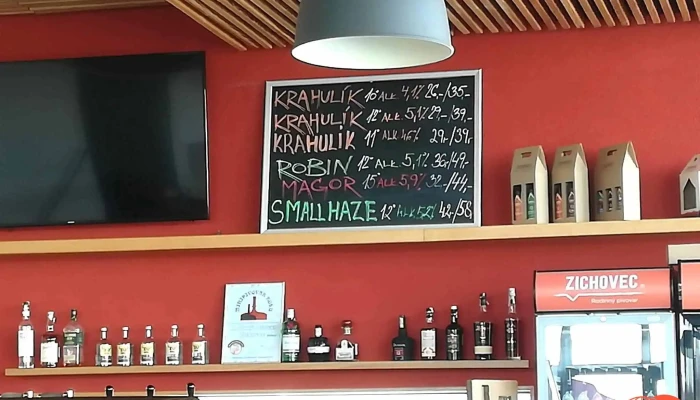 KRAHULÍK 10° ALK 4,1% 26,-/35,-
KRAHULÍK 12° ALK 5,1% 29,-/39,-
KRAHULÍK 11° ALK 4,6% 29,-/39,-
ROBIN 12° ALK 5,1% 36,-/49,-
MAGOR 15° ALK 5,9% 32,-/44,-
SMALL HAZE 12° ALK 5,2% 42,-/58,-
ZICHOVEC
Rodinný pivovar